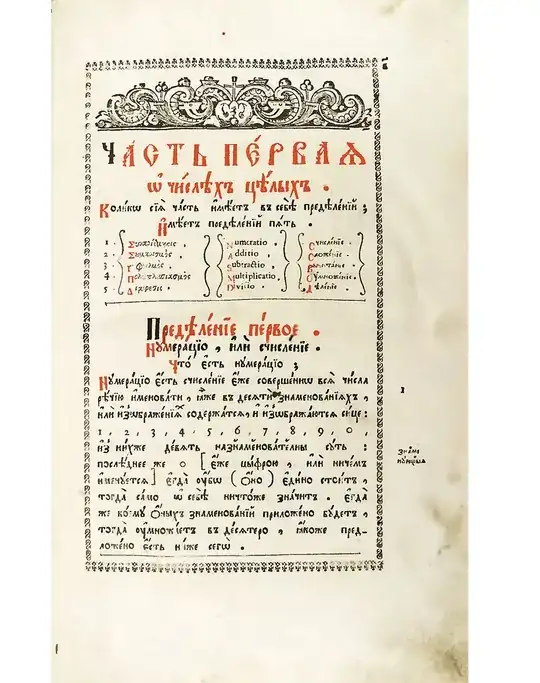 Часть пе́рваѧ
ѡ чи́слѣхъ цѣ́лыхъ .
Коли́кѡ сїѧ̀ ча́сть и҆мѣ́етъ въ себѣ̀ предѣле́нїй ;
И҆мѣ́етъ предѣле́нїй пѧ́ть .
1 · Numeratio Счисле́нїе
2 · Additio Сложе́нїе
3 · Subtractio Вычита́нїе
4 · Multiplicatio Оу҆множе́нїе
5 · Divisio Дѣле́нїе
Предѣле́нїе пе́рвое .
Нꙋмера́цїо , и҆лѝ счисле́нїе .
Что̀ є҆́сть нꙋмера́цїо ;
Нꙋмера́цїо є҆́сть счисле́нїе є҆́же соверше́ннѡ всѧ̑ чи́сла
рѣ́чїю и҆менова́ти , ꙗ҆̀же въ десѧтѝ знаменова́нїѧхъ ,
и҆лѝ и҆з̾ѡбраже́нїи содержа́тсѧ , и҆ и҆з̾ѡбража́ютсѧ си́це :
1 , 2 , 3 , 4 , 5 , 6 , 7 , 8 , 9 , 0 ,
и҆з̾ ни́хже де́вѧть назнаменова́тєлны сꙋ́ть :
послѣ́днее же 0 [ є҆́же цы́фрою , и҆лѝ ничѣ́мъ
и҆менꙋ́етсѧ ] є҆гда̀ оу҆́бѡ ( О҆́но ) є҆ди́но стои́тъ ,
тогда̀ са́мо ѡ҆ себѣ̀ ничто́же значи́тъ . Е҆гда́
же коемꙋ̀ О҆́ныхъ знаменова́нїй приложено̀ бꙋ́детъ ,
тогда̀ оу҆мно́житъ въ де́сѧтеро , ꙗ҆́коже пред-
ложено̀ є҆́сть ни́же сегѡ̀ .
1